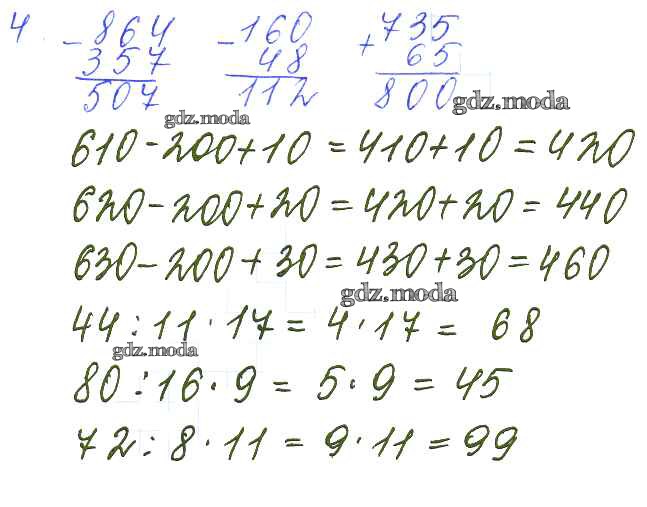 4. - 864 - 160 + 735
357 48 65
507 112 800
gdz.moda
gdz.moda
610 - 200 + 10 = 410 + 10 = 420
620 - 200 + 20 = 420 + 20 = 440
630 - 200 + 30 = 430 + 30 = 460
gdz.moda
44 : 11 · 17 = 4 · 17 = 68
gdz.moda
80 : 16 · 9 = 5 · 9 = 45
72 : 8 · 11 = 9 · 11 = 99